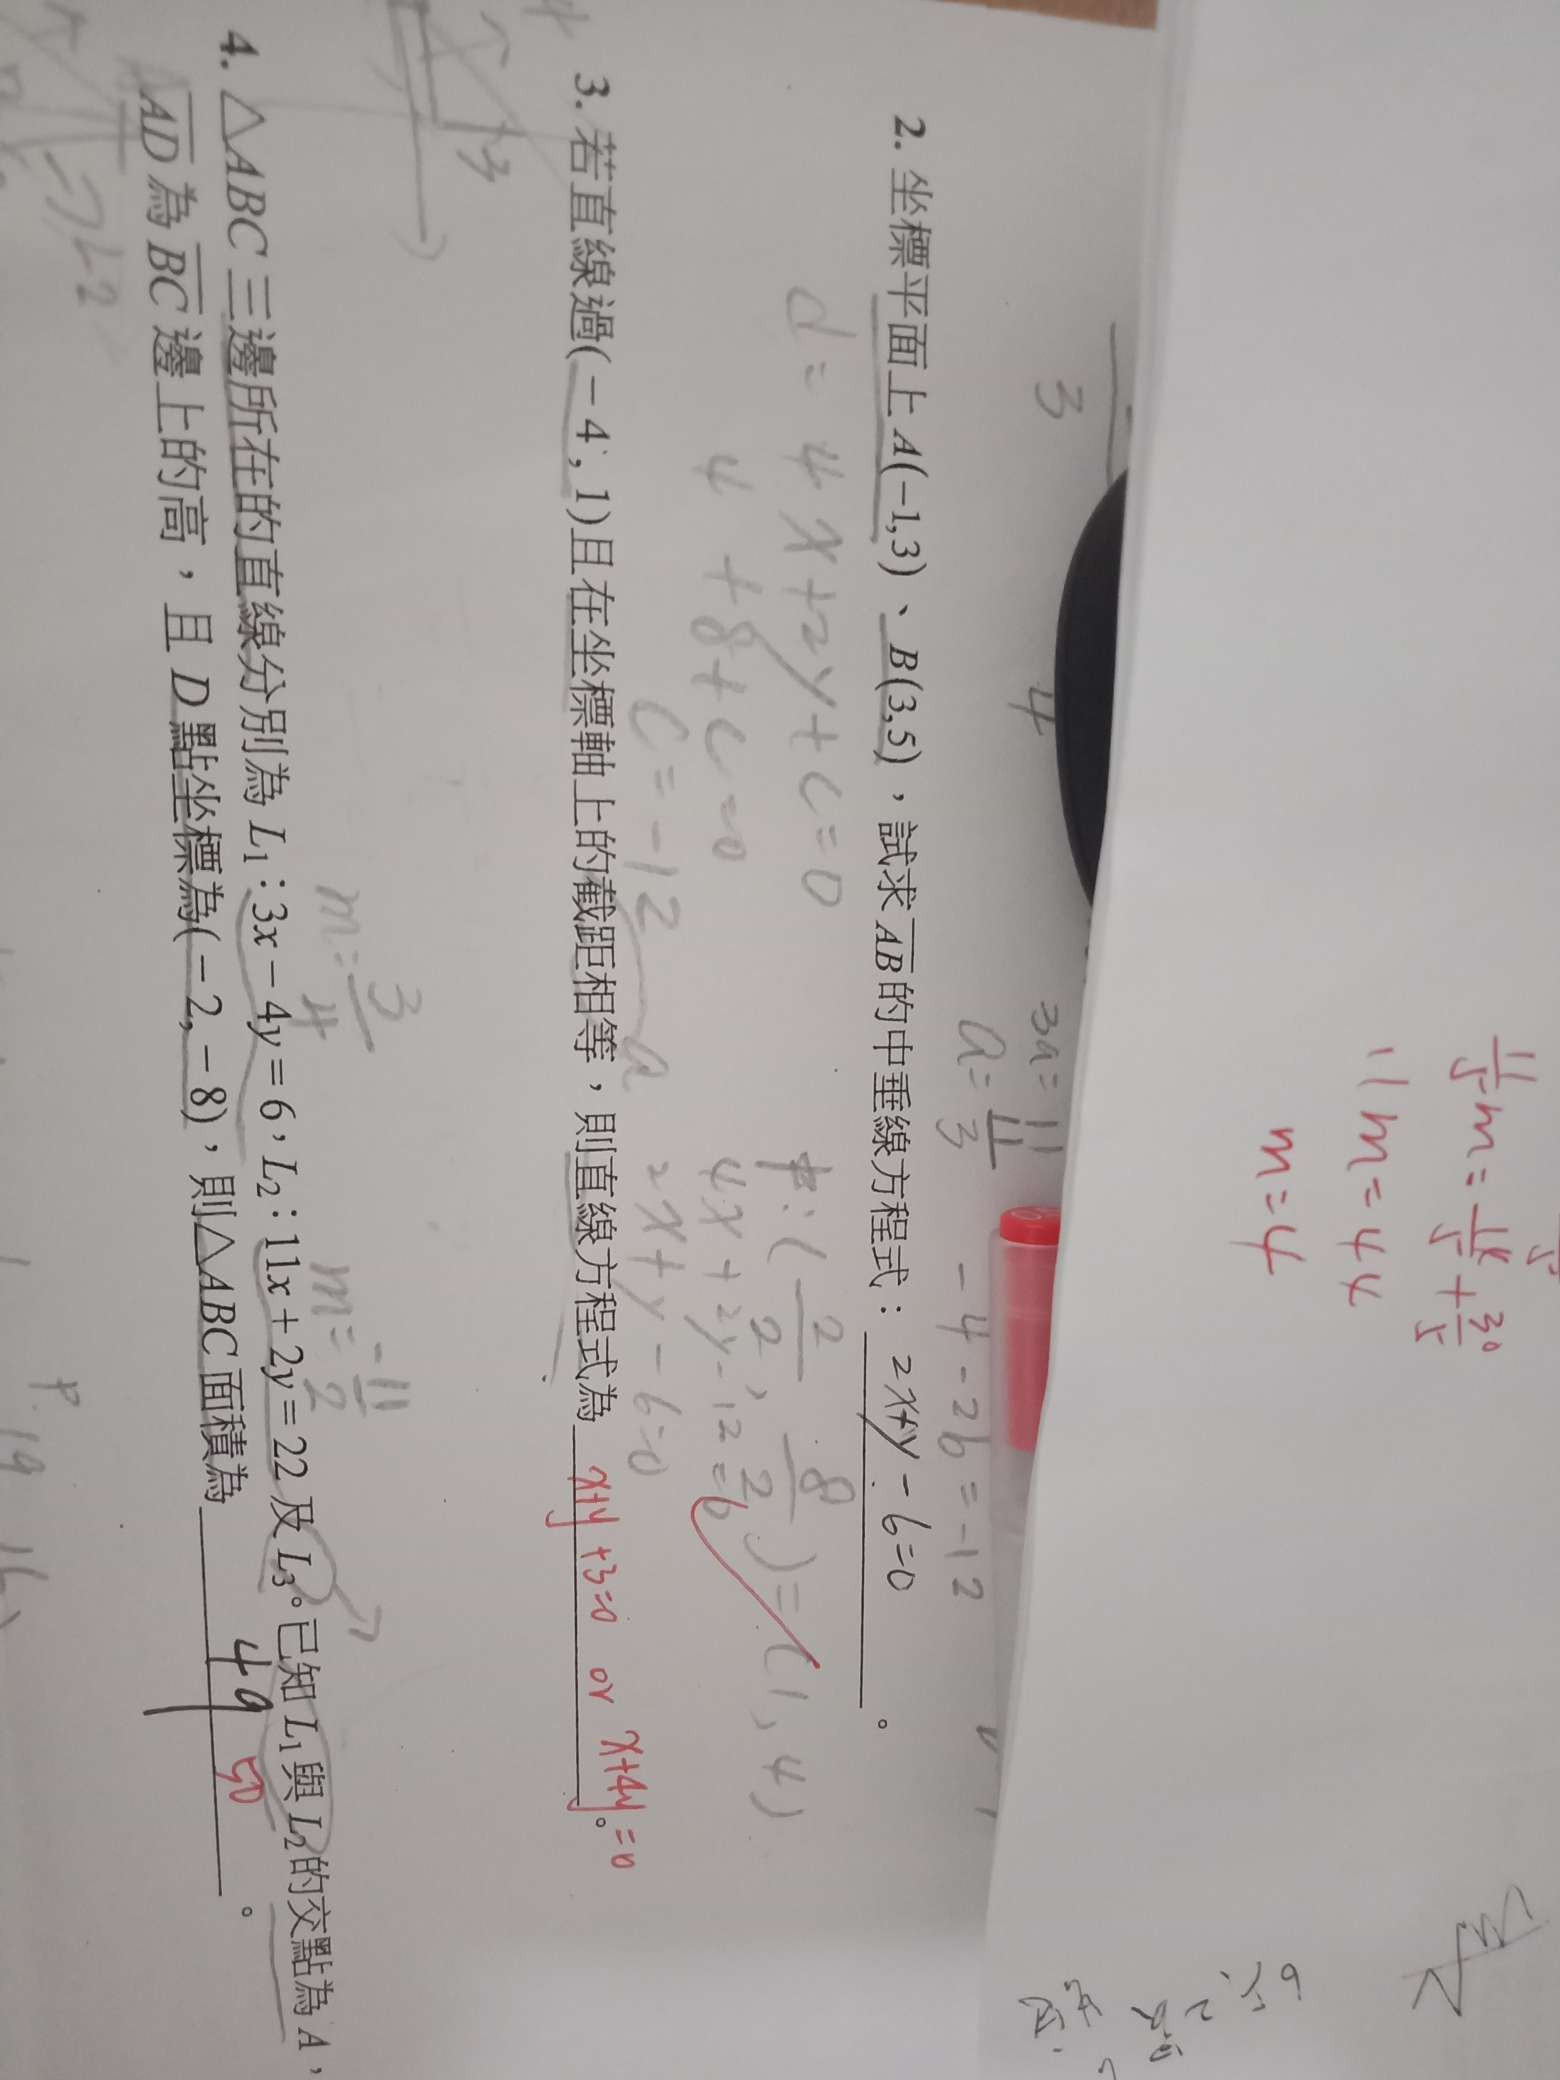 3
4
3a=11
a=11/3
-4-2b=-12
2. 坐標平面上A(-1,3)、B(3,5),試求AB的中垂線方程式: 2x+y-6=0 。
d=4x+2y+c=0
4+8+c=0
c=-12
中:(2/2, 8/2)=(1,4)
4x+2y-12=0
2x+y-6=0
3. 若直線過(-4,1)且在坐標軸上的截距相等,則直線方程式為 x+y+3=0 or x+4y=0 。
3
m=3/4
m=-11/2
4. △ABC三邊所在的直線分別為L₁:3x-4y=6,L₂:11x+2y=22及L₃。已知L₁與L₂的交點為A,
AD為BC邊上的高,且D點坐標為(-2,-8),則△ABC面積為 49 50 。
L2
11/5m=14/5+30/5
11m=44
m=4